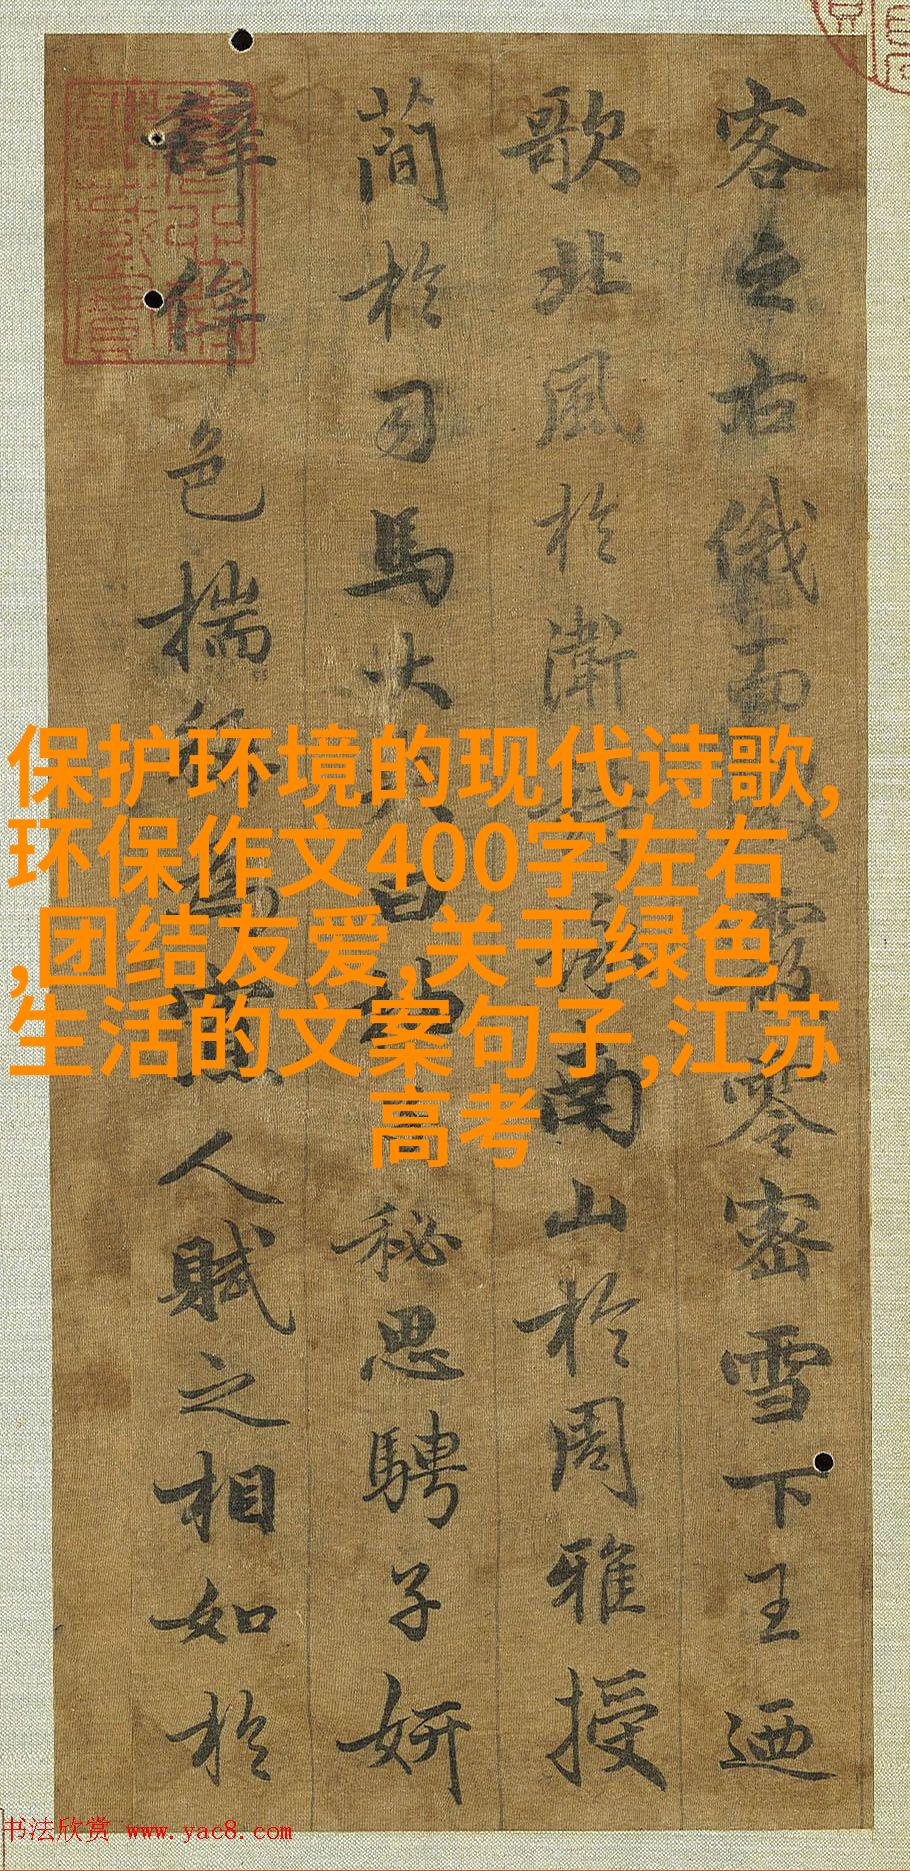 客之右俄而霰零密雪下王迺
歌北風於衛詩詠南山於周雅授
簡於司馬大夫曰抽秘思騁子妍
辭侔色揣稱為寡人賦之相如於
保护环境的现代诗歌,
环保作文400字左右
,团结友爱,关于绿色
生活的文案句子,江苏
高考
书法欣赏 www.yac8.com